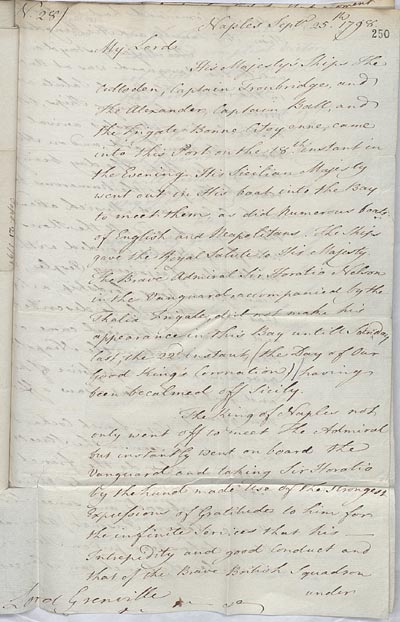 N. 28/
Naples Septr. 25th. 1798.
250
My Lord
His Majesty's Ships the
Culloden, Captain Trowbridge, and
the Alexander, Captain Ball, and
the Frigate Bonne Citoyenne, came
into this Port on the 18th. instant in
the Evening. His Sicilian Majesty
went out in His boat into the Bay
to meet them, as did Numerous boats
of English and Neapolitans. The Ships
gave the Royal Salute to His Majesty
The Brave Admiral Sir Horatio Nelson
in the Vanguard accompanied by the
Thalia Frigate, did not make his
appearance in this Bay untill Saturday
last, the 22d. instant, (the Day of Our
Good King's Coronation) having
been becalmed off Sicily.
The King of Naples not
only went off to meet the Admiral
but instantly went on board the
Vanguard and taking Sir Horatio
by the hand made Use of the strongest
Expressions of Gratitude to him for
the infinite Services that his
Intrepidity and good Conduct and
that of the Brave British Squadron
under
Lord Grenville